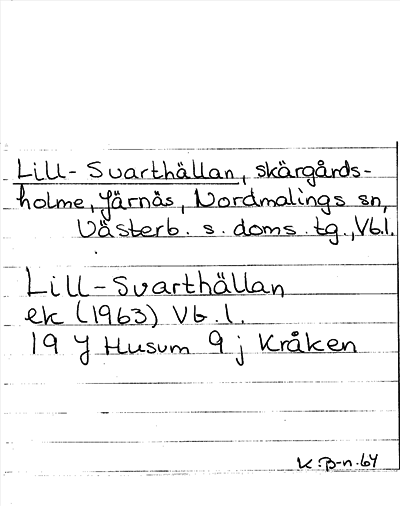 Lill-Svarthällan, skärgårds-
holme, Järnäs, Nordmalings sn,
Västerb. s. doms. tg., Vb.l.
Lill-Svarthällan
ek (1963) Vb.l.
19 J Husum 9 j Kråken
K:p-n.64